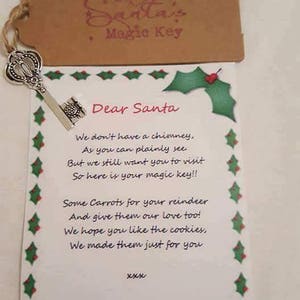 Santa's
Magic Key
Dear Santa
We don't have a chimney,
As you can plainly see
But we still want you to visit
So here is your magic key!!
Some Carrots for your reindeer
And give them our love too!
We hope you like the cookies,
We made them just for you
xxx